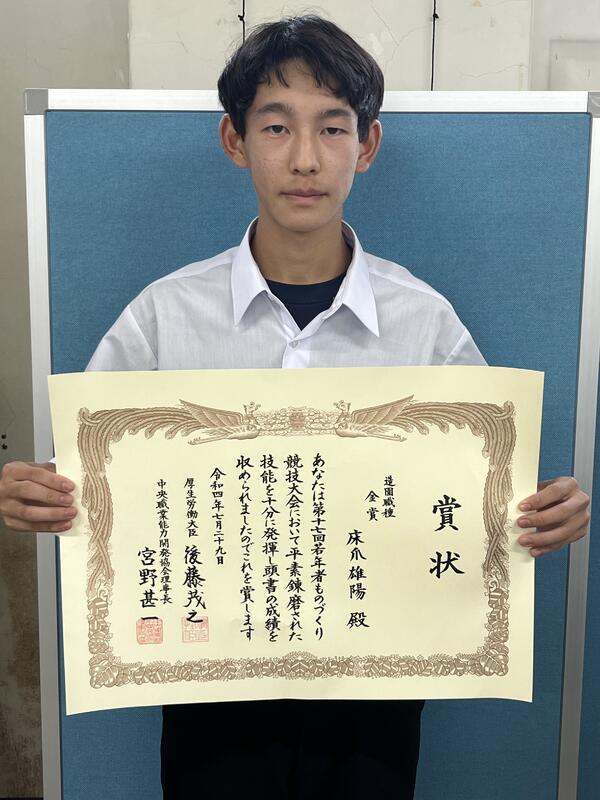 賞状
造園職種
金賞
床爪雄陽殿
あなたは第十七回若年者ものづくり
競技大会において平素錬磨された
技能を十分に発揮し頭書の成績を
収められましたのでこれを賞します
令和四年七月二十九日
厚生労働大臣 後藤茂之
中央職業能力開発協会理事長
宮野甚一